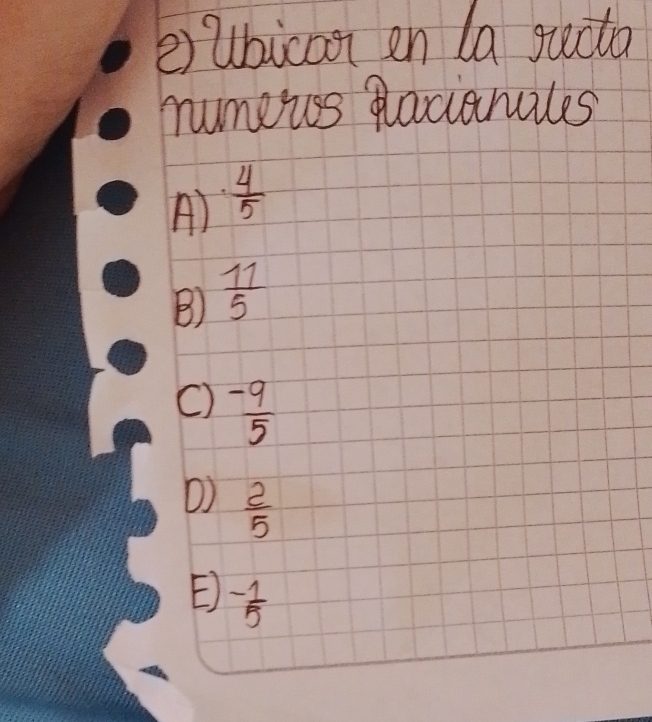 e) Ubicar en la recta
numeros Racionales
A) 4/5
B) 11/5
C) -9/5
D) 2/5
E) -1/5